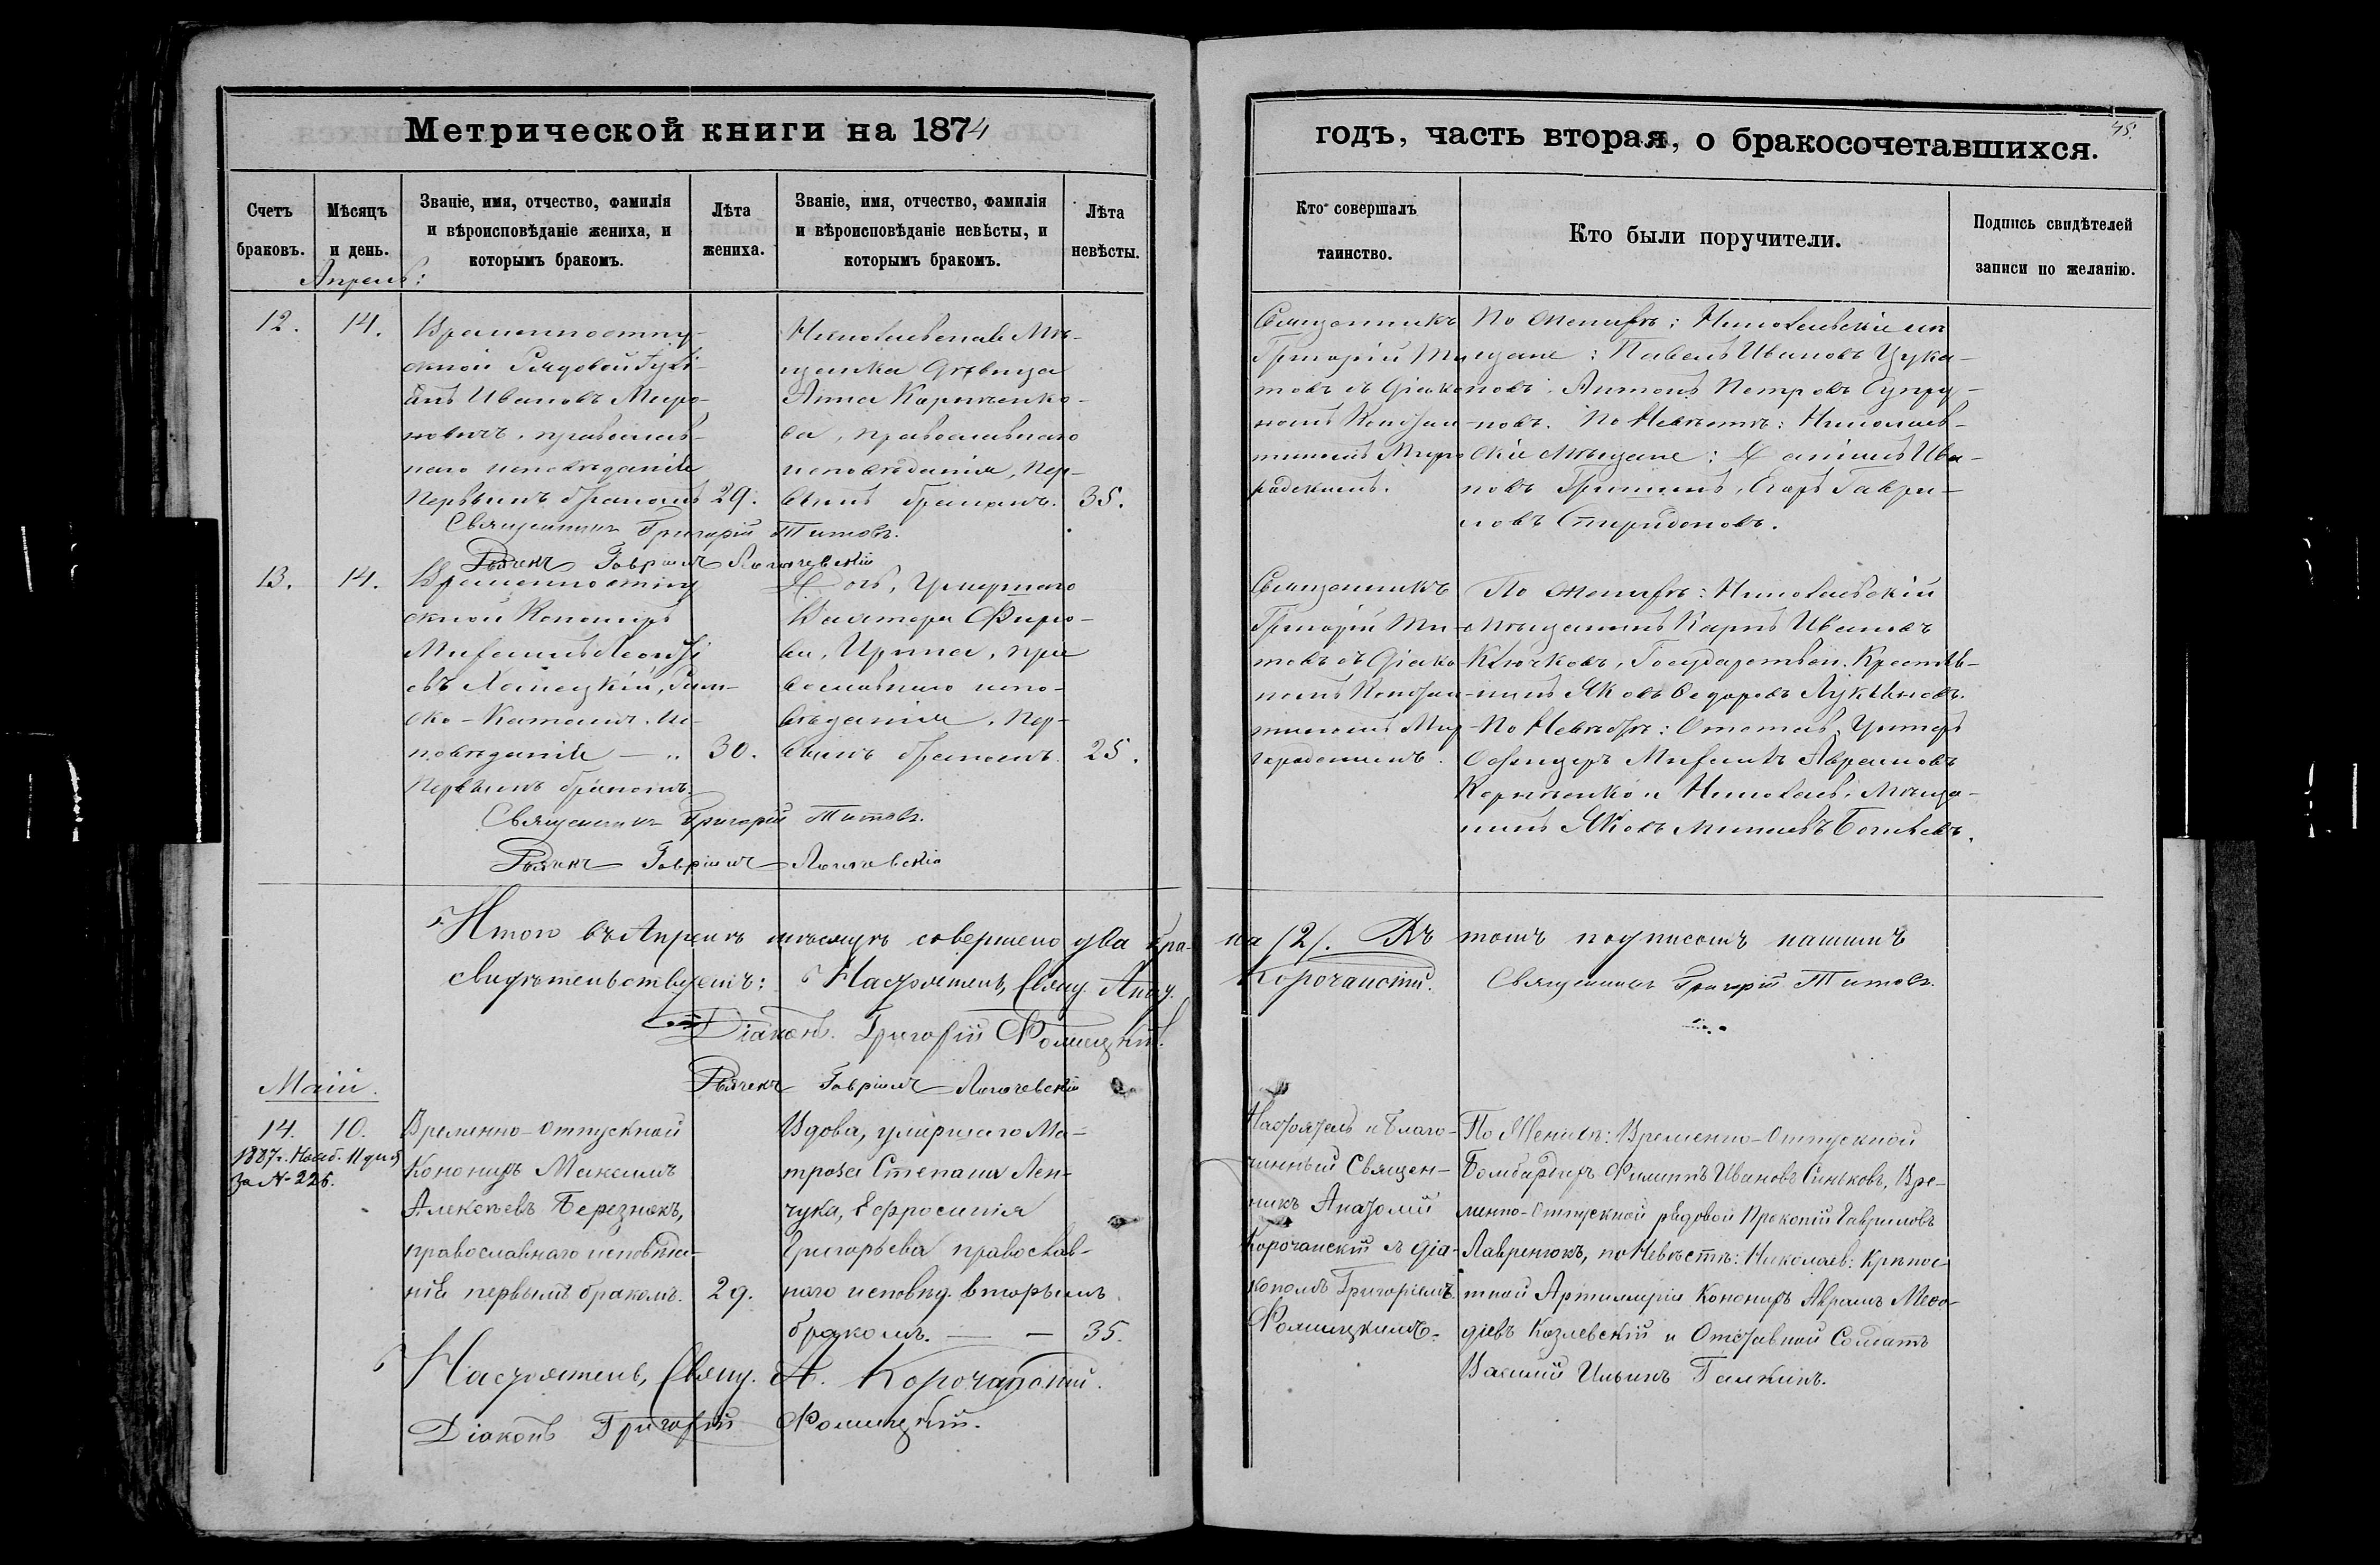 Метрической книги на 1874
годъ, часть вторая, о бракосочетавшихся.
45.
Счетъ
браковъ.
Мѣсяцъ
и день.
Званіе, имя, отчество, фамилія
и вѣроисповѣданіе жениха, и
которымъ бракомъ.
Лѣта
жениха.
Званіе, имя, отчество, фамилія
и вѣроисповѣданіе невѣсты, и
которымъ бракомъ.
Лѣта
невѣсты.
Кто совершалъ
таинство.
Кто были поручители.
Подпись свидѣтелей
записи по желанію.
Апрель:
12.
14.
Временноотпу-
скной Рядовой
Ивановъ Миро-
новичъ, православ-
наго исповѣданія
первымъ бракомъ
29.
Николаевская Мѣ-
щанка дѣвица
Анна Карпѣенко-
ва, православнаго
исповѣданія, пер-
вымъ бракомъ.
35.
Священникъ
Григорій Ти-
товъ съ діако-
номъ Констан-
тиномъ Миро-
градскимъ.
По женихѣ: Николаевскіе мѣ-
щане: Павелъ Ивановъ Цука-
новъ, Антонъ Петровъ Супру-
новъ. По Невѣстѣ: Николаев-
скіе мѣщане: Даніилъ Ива-
новъ Гришинъ, Егоръ Гаври-
ловъ Спиридоновъ.
Священникъ Григорій Титовъ.
Дьячекъ Гавріилъ
13.
14.
Временноотпу
скной Канониръ
Михаилъ Леонті
евъ Рим-
ско-Католич. Ис-
повѣданія —
первымъ бракомъ.
30.
Дочь, Умершаго
Фиро-
ва, Ирина, пра
вославнаго испо-
вѣданія, пер-
вымъ бракомъ.
25.
Священникъ
Григорій Ти-
товъ съ діако
номъ Констан-
тиномъ Мир
градскимъ.
По женихѣ: Николаевскій
мѣщанинъ Карпъ Ивановъ
Клочковъ, Государствен. Крестья-
нинъ Яковъ Федоровъ Лукьяновъ.
По Невѣстѣ: Отстав. Унтеръ
Офицеръ Михаилъ Аврамовъ
Корниенко и Николаев. мѣща-
нинъ Яковъ
Священникъ Григорій Титовъ.
Дьячекъ Гавріилъ
Итого въ Апрелѣ мѣсяцѣ совершено два бра-
ка /2/. Въ томъ подписомъ нашимъ
свидѣтельствуемъ: Настоятель, Свящ. Анат.
Корочанскій. Священникъ Григорій Титовъ.
Діаконъ. Григорій Фомицкій.
Дьячекъ Гавріилъ
Маій.
14.
10.
1887г. Нояб. 11 дня
За №226.
Временно-Отпускной
Канониръ Максимъ
Алексѣевъ Березнюкъ,
православнаго исповѣда-
нія первымъ бракомъ.
29.
Вдова, умершаго Ма-
троса Степана Лен-
чука, Ефросинія
Григорьева православ-
наго исповѣд. вторымъ
бракомъ. — —
35.
Настоятель и Благо-
чинный Священ-
никъ Анатолій
Корочанскій съ діа-
кономъ Григоріемъ
Фомицкимъ.
По Женихѣ: Временно-Отпускной
Бомбардиръ Филиппъ Ивановъ Синьковъ, Вре-
менно-Отпускной рядовой Прокопій Гавриловъ
Лавренюкъ, по Невѣстѣ: Николаев: Крѣпос-
тной Артиллеріи Канониръ Аврамъ Мефо-
діевъ Козлевскій и Отставной Солдатъ
Василій Ильинъ Галкинъ.
Настоятель, Свящ. А. Корочанскій.
Діаконъ Григорій Фомицкій.